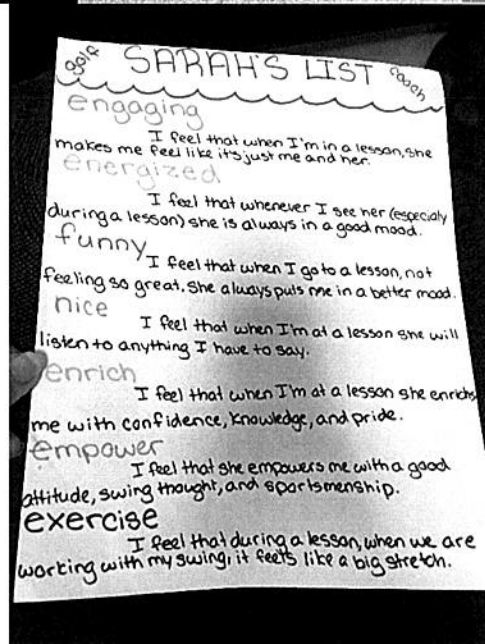 golf SARAH'S LIST coach
engaging
I feel that when I'm in a lesson, she
makes me feel like it's just me and her.
energized
I feel that whenever I see her (especialy
during a lesson) she is always in a good mood.
funny
I feel that when I go to a lesson, not
feeling so great, she always puts me in a better mood.
nice
I feel that when I'm at a lesson she will
listen to anything I have to say.
enrich
I feel that when I'm at a lesson she enrichs
me with confidence, knowledge, and pride.
empower
I feel that she empowers me with a good
attitude, swing thought, and sportsmenship.
exercise
I feel that during a lesson, when we are
working with my swing, it feels like a big stretch.